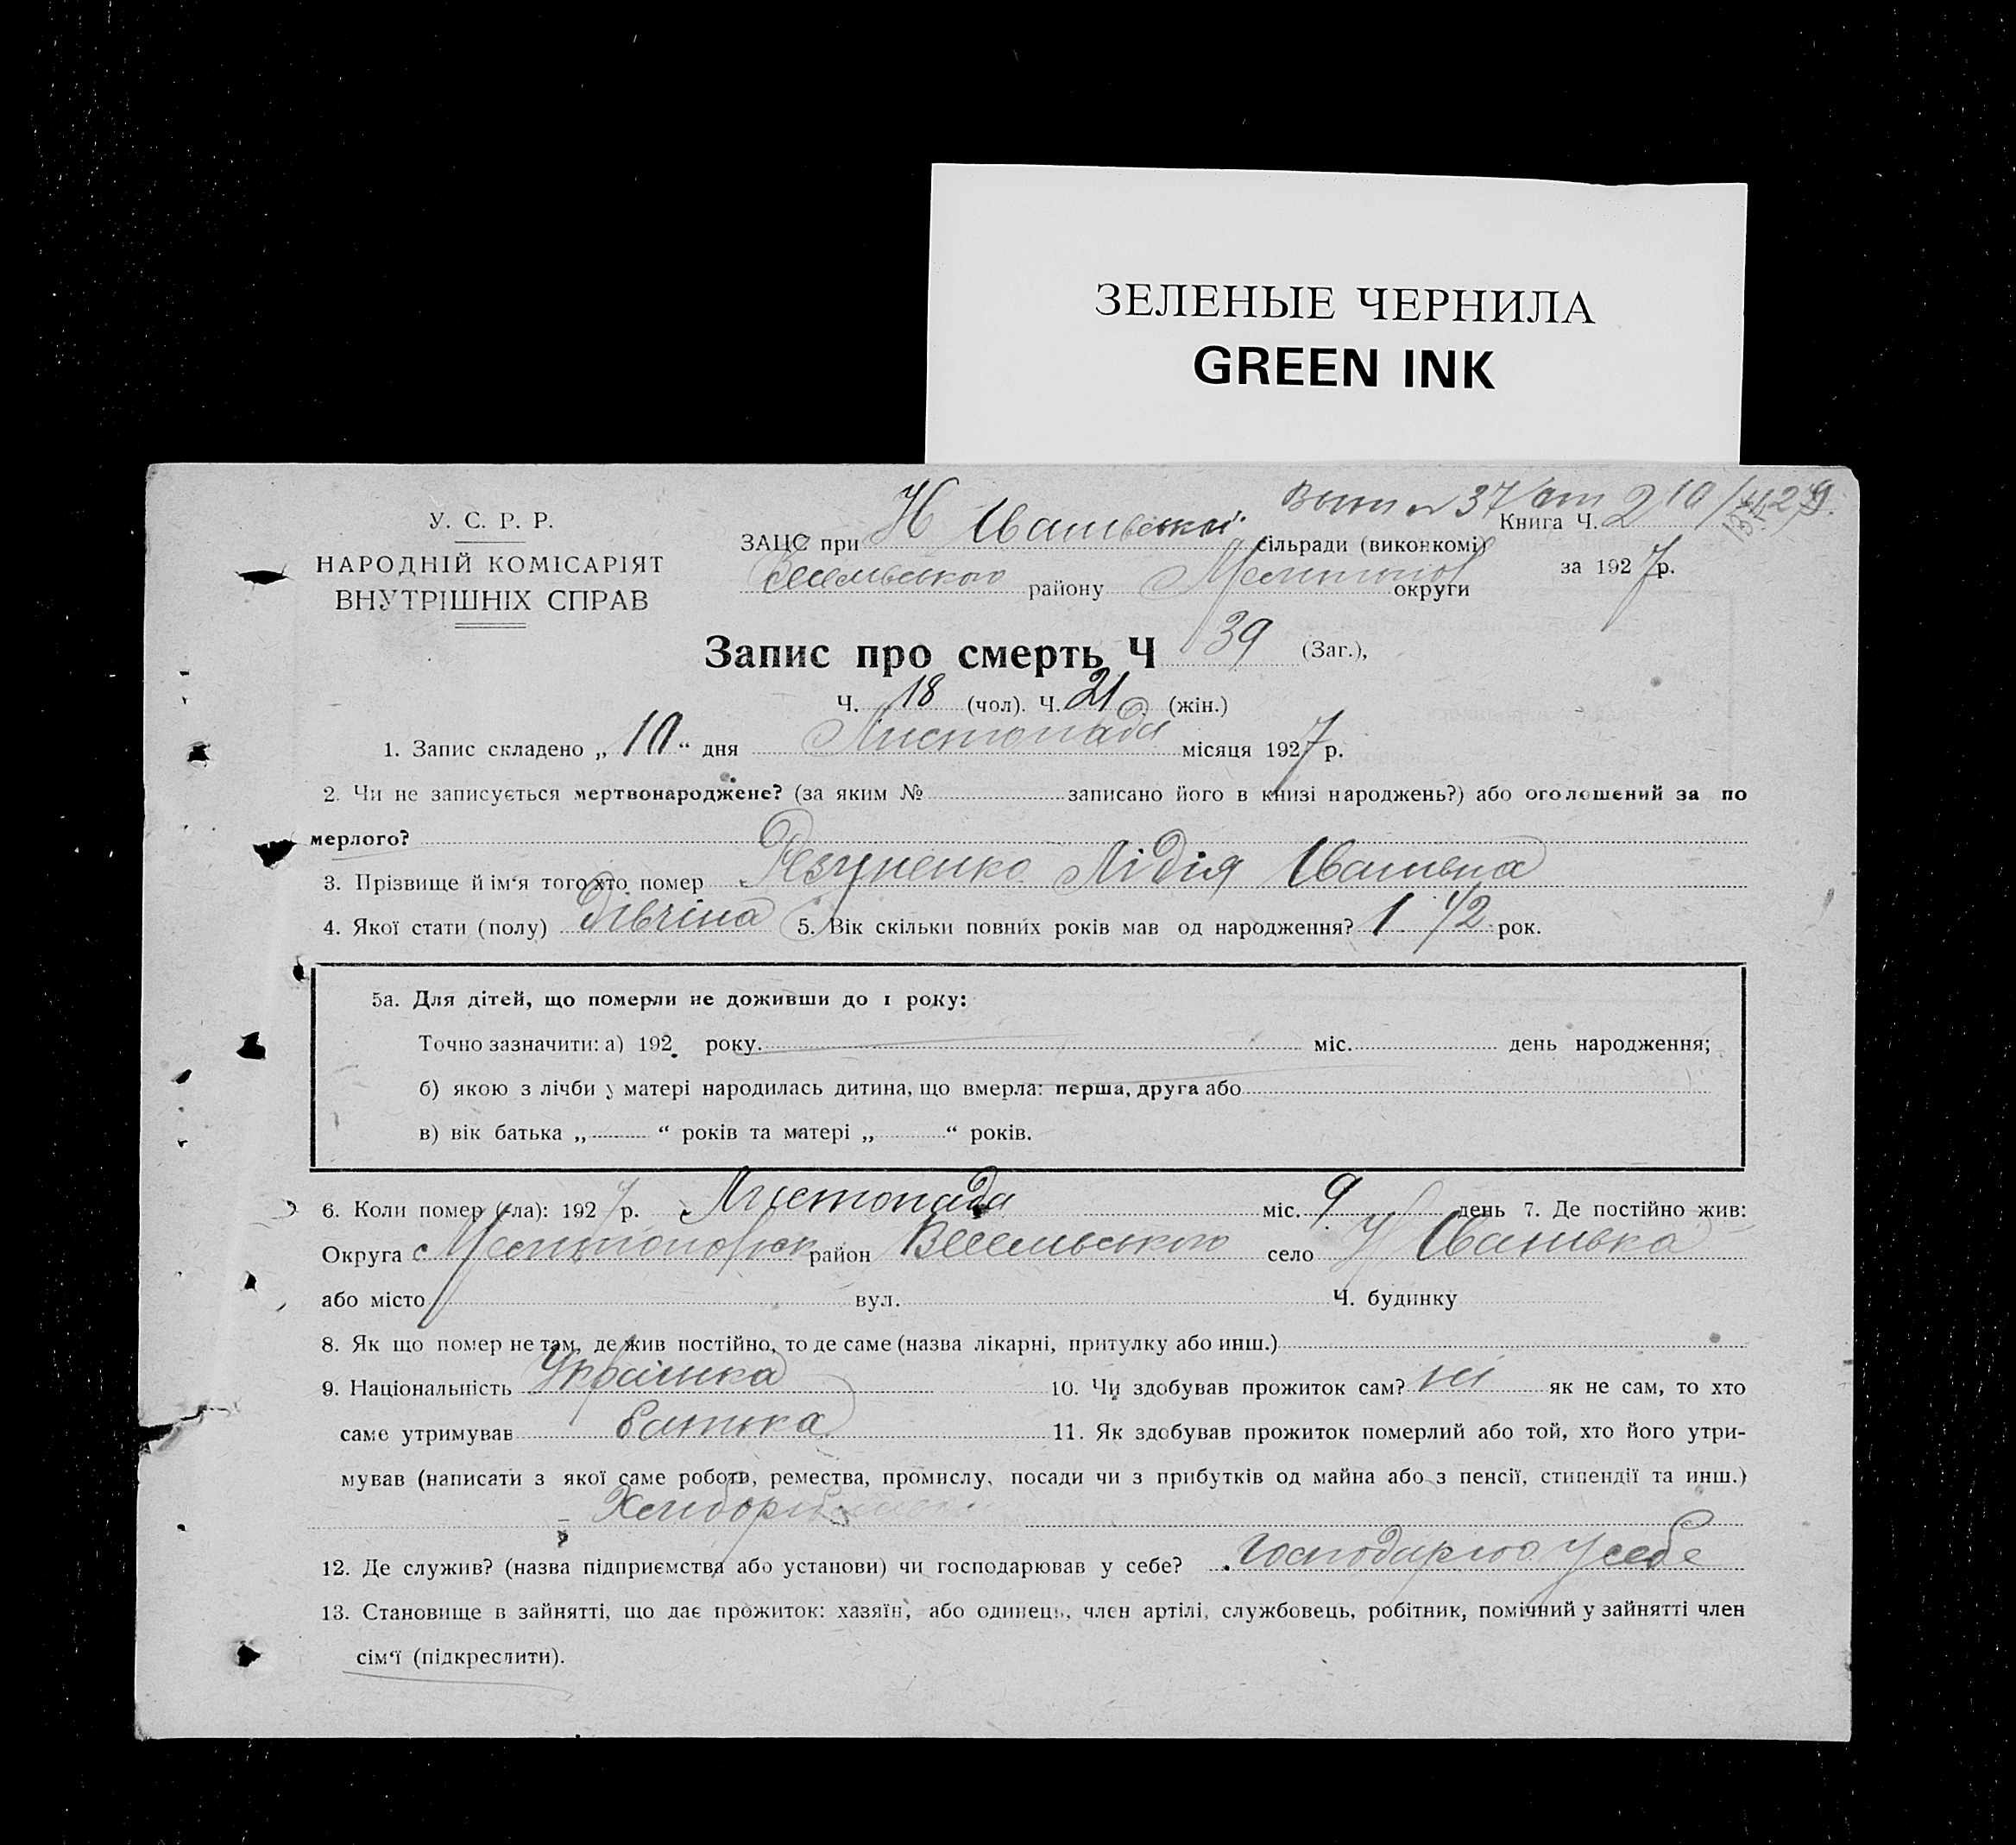 ЗЕЛЕНЫЕ ЧЕРНИЛА
GREEN INK
У. С. Р. Р.
НАРОДНІЙ КОМІСАРІЯТ
ВНУТРІШНІХ СПРАВ
37 от 2
Книга Ч.
ЗАЦС при Н Іванівській сільради (виконкомі)
за 1927 р.
Веселівського району Мелитопол округи
Запис про смерть Ч 39 (Заг.),
Ч. 18 (чол). Ч. 21 (жін.)
1. Запис складено „ 10 “ дня Листопада місяця 1927 р.
2. Чи не записується мертвонароджене? (за яким № записано його в книзі народжень?) або оголошений за по
мерлого?
3. Прізвище й ім‘я того хто помер Резуненко Лідія Іванівна
4. Якої стати (полу) дівчіна 5. Вік скільки повних років мав од народження? 1 1/2 рок.
5а. Для дітей, що померли не доживши до 1 року:
Точно зазначити: а) 192 року. міс. день народження;
б) якою з лічби у матері народилась дитина, що вмерла: перша, друга або
в) вік батька „ “ років та матері „ “ років.
6. Коли помер (-ла): 1927 р. Листопада міс. 9 день 7. Де постійно жив:
Округа Мелитопольск район Веселівського село Іванівка
або місто вул. Ч. будинку
8. Як що помер не там, де жив постійно, то де саме (назва лікарні, притулку або инш.)
9. Національність Українка 10. Чи здобував прожиток сам? ні як не сам, то хто
саме утримував батька 11. Як здобував прожиток померлий або той, хто його утри-
мував (написати з якої саме роботи, ремества, промислу, посади чи з прибутків од майна або з пенсії, стипендії та инш.)
12. Де служив? (назва підприємства або установи) чи господарював у себе? Господарюю у себе
13. Становище в зайнятті, що дає прожиток: хазяїн, або одинець, член артілі, службовець, робітник, помічний у зайнятті член
сім‘ї (підкреслити).